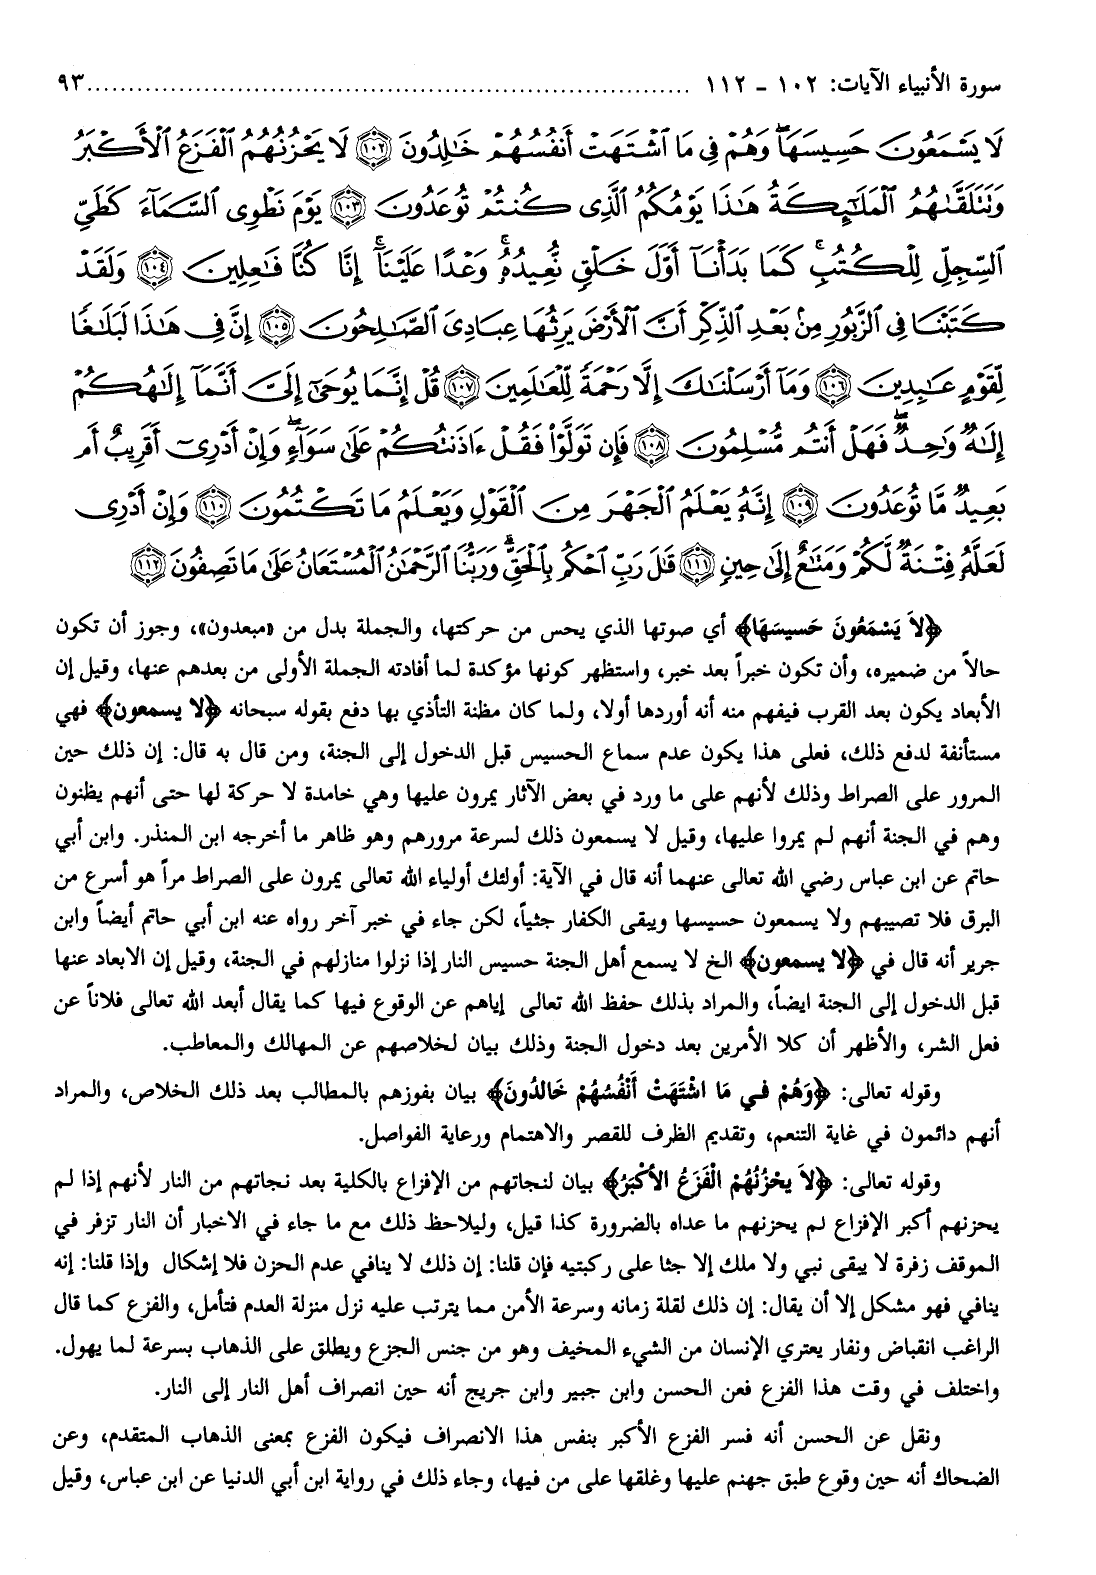 سورة الأنبياء الآيات: ١٠٢ - ١١٢ ........................................................................ ٩٣
لَا يَسْمَعُونَ حَسِيسَهَا ۖ وَهُمْ فِى مَا ٱشْتَهَتْ أَنفُسُهُمْ خَٰلِدُونَ ﴿١٠٢﴾ لَا يَحْزُنُهُمُ ٱلْفَزَعُ ٱلْأَكْبَرُ
وَتَتَلَقَّىٰهُمُ ٱلْمَلَٰٓئِكَةُ هَٰذَا يَوْمُكُمُ ٱلَّذِى كُنتُمْ تُوعَدُونَ ﴿١٠٣﴾ يَوْمَ نَطْوِى ٱلسَّمَآءَ كَطَىِّ
ٱلسِّجِلِّ لِلْكُتُبِ ۚ كَمَا بَدَأْنَآ أَوَّلَ خَلْقٍ نُّعِيدُهُۥ ۚ وَعْدًا عَلَيْنَآ ۚ إِنَّا كُنَّا فَٰعِلِينَ ﴿١٠٤﴾ وَلَقَدْ
كَتَبْنَا فِى ٱلزَّبُورِ مِنۢ بَعْدِ ٱلذِّكْرِ أَنَّ ٱلْأَرْضَ يَرِثُهَا عِبَادِىَ ٱلصَّٰلِحُونَ ﴿١٠٥﴾ إِنَّ فِى هَٰذَا لَبَلَٰغًا
لِّقَوْمٍ عَٰبِدِينَ ﴿١٠٦﴾ وَمَآ أَرْسَلْنَٰكَ إِلَّا رَحْمَةً لِّلْعَٰلَمِينَ ﴿١٠٧﴾ قُلْ إِنَّمَا يُوحَىٰٓ إِلَىَّ أَنَّمَآ إِلَٰهُكُمْ
إِلَٰهٌ وَٰحِدٌ ۖ فَهَلْ أَنتُم مُّسْلِمُونَ ﴿١٠٨﴾ فَإِن تَوَلَّوْا۟ فَقُلْ ءَاذَنتُكُمْ عَلَىٰ سَوَآءٍ ۖ وَإِنْ أَدْرِىٓ أَقَرِيبٌ أَم
بَعِيدٌ مَّا تُوعَدُونَ ﴿١٠٩﴾ إِنَّهُۥ يَعْلَمُ ٱلْجَهْرَ مِنَ ٱلْقَوْلِ وَيَعْلَمُ مَا تَكْتُمُونَ ﴿١١٠﴾ وَإِنْ أَدْرِى
لَعَلَّهُۥ فِتْنَةٌ لَّكُمْ وَمَتَٰعٌ إِلَىٰ حِينٍ ﴿١١١﴾ قَٰلَ رَبِّ ٱحْكُم بِٱلْحَقِّ ۗ وَرَبُّنَا ٱلرَّحْمَٰنُ ٱلْمُسْتَعَانُ عَلَىٰ مَا تَصِفُونَ ﴿١١٢﴾
﴿لاَ يَسْمَعُونَ حَسِيسَهَا﴾ أي صوتها الذي يحس من حركتها، والجملة بدل من «مبعدون»، وجوز أن تكون
حالاً من ضميره، وأن تكون خبراً بعد خبر، واستظهر كونها مؤكدة لما أفادته الجملة الأولى من بعدهم عنها، وقيل إن
الأبعاد يكون بعد القرب فيفهم منه أنه أوردها أولا، ولما كان مظنة التأذي بها دفع بقوله سبحانه ﴿لا يسمعون﴾ فهي
مستأنفة لدفع ذلك، فعلى هذا يكون عدم سماع الحسيس قبل الدخول إلى الجنة، ومن قال به قال: إن ذلك حين
المرور على الصراط وذلك لأنهم على ما ورد في بعض الآثار يمرون عليها وهي خامدة لا حركة لها حتى أنهم يظنون
وهم في الجنة أنهم لم يمروا عليها، وقيل لا يسمعون ذلك لسرعة مرورهم وهو ظاهر ما أخرجه ابن المنذر. وابن أبي
حاتم عن ابن عباس رضي الله تعالى عنهما أنه قال في الآية: أولئك أولياء الله تعالى يمرون على الصراط مراً هو أسرع من
البرق فلا تصيبهم ولا يسمعون حسيسها ويبقى الكفار جثياً، لكن جاء في خبر آخر رواه عنه ابن أبي حاتم أيضاً وابن
جرير أنه قال في ﴿لا يسمعون﴾ الخ لا يسمع أهل الجنة حسيس النار إذا نزلوا منازلهم في الجنة، وقيل إن الابعاد عنها
قبل الدخول إلى الجنة ايضاً، والمراد بذلك حفظ الله تعالى إياهم عن الوقوع فيها كما يقال أبعد الله تعالى فلاناً عن
فعل الشر، والأظهر أن كلا الأمرين بعد دخول الجنة وذلك بيان لخلاصهم عن المهالك والمعاطب.
وقوله تعالى: ﴿وَهُمْ فـي مَا اشْتَهَتْ أَنْفُسُهُمْ خَالدُونَ﴾ بيان بفوزهم بالمطالب بعد ذلك الخلاص، والمراد
أنهم دائمون في غاية التنعم، وتقديم الظرف للقصر والاهتمام ورعاية الفواصل.
وقوله تعالى: ﴿لاَ يحْزُنُهُمْ الْفَزَعُ الأَكْبَرُ﴾ بيان لنجاتهم من الإفزاع بالكلية بعد نجاتهم من النار لأنهم إذا لم
يحزنهم أكبر الإفزاع لم يحزنهم ما عداه بالضرورة كذا قيل، وليلاحظ ذلك مع ما جاء في الاخبار أن النار تزفر في
الموقف زفرة لا يبقى نبي ولا ملك إلا جثا على ركبتيه فإن قلنا: إن ذلك لا ينافي عدم الحزن فلا إشكال وإذا قلنا: إنه
ينافي فهو مشكل إلا أن يقال: إن ذلك لقلة زمانه وسرعة الأمن مما يترتب عليه نزل منزلة العدم فتأمل، والفزع كما قال
الراغب انقباض ونفار يعتري الإنسان من الشيء المخيف وهو من جنس الجزع ويطلق على الذهاب بسرعة لما يهول.
واختلف في وقت هذا الفزع فعن الحسن وابن جبير وابن جريج أنه حين انصراف أهل النار إلى النار.
ونقل عن الحسن أنه فسر الفزع الأكبر بنفس هذا الانصراف فيكون الفزع بمعنى الذهاب المتقدم، وعن
الضحاك أنه حين وقوع طبق جهنم عليها وغلقها على من فيها، وجاء ذلك في رواية ابن أبي الدنيا عن ابن عباس، وقيل